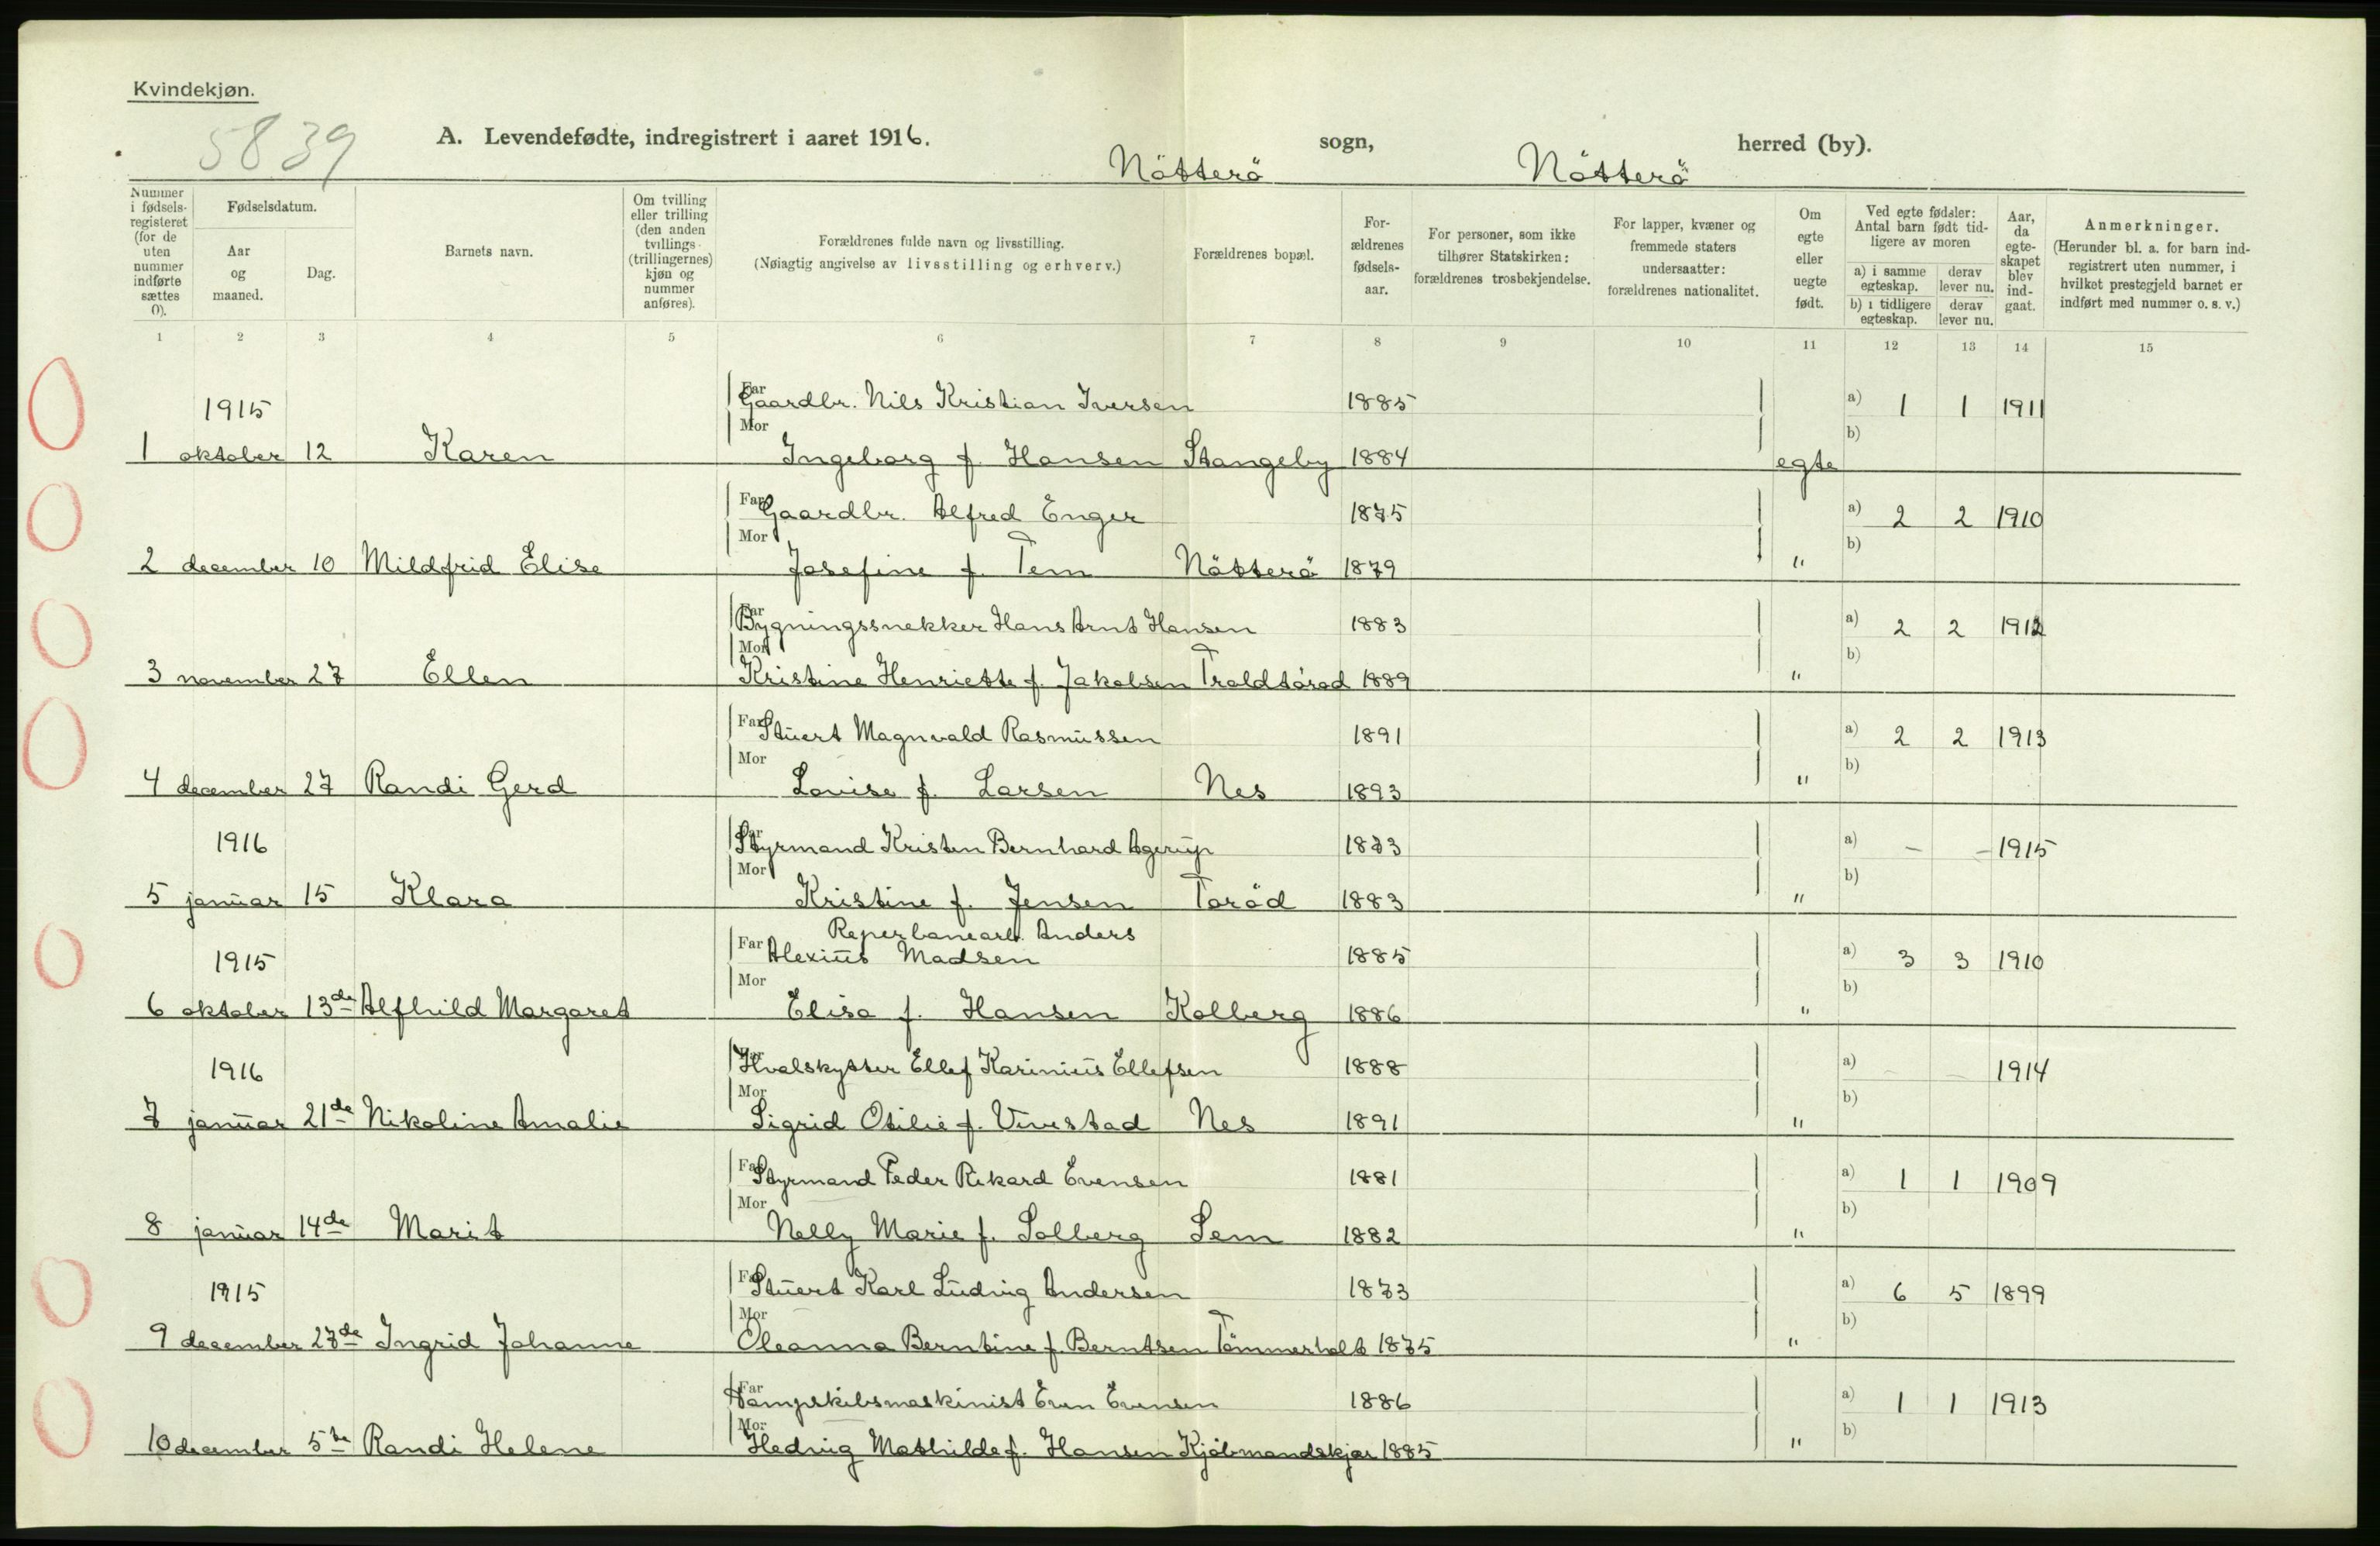 Kvindekjøn.
5839
A. Levendefødte, indregistrert i aaret 1916.
Nötterö sogn, Nötterö herred (by).
Nummer i fødsels-registeret (for de uten nummer indførte sættes 0).
Fødselsdatum.
Aar og maaned.
Dag.
Barnets navn.
Om tvilling eller trilling (den anden tvillings (trillingernes) kjøn og nummer anføres).
Forældrenes fulde navn og livsstilling.
(Nøiagtig angivelse av livsstilling og erhverv.)
Forældrenes bopæl.
For-ældrenes fødsels-aar.
For personer, som ikke tilhører Statskirken: forældrenes trosbekjendelse.
For lapper, kvæner og fremmede staters undersaatter: forældrenes nationalitet.
Om egte eller uegte født.
Ved egte fødsler: Antal barn født tid-ligere av moren
a) i samme egteskap.
derav lever nu.
b) i tidligere egteskap.
derav lever nu.
Aar, da egte-skapet blev ind-gaat.
Anmerkninger.
(Herunder bl. a. for barn ind-registrert uten nummer, i hvilket prestegjeld barnet er indført med nummer o. s. v.)
1 2 3 4 5 6 7 8 9 10 11 12 13 14 15
1915 Far Gaardbr. Nils Kristian Iversen 1885 a) 1 1 1911
Mor b)
1 oktober 12 Karen Ingeborg f. Hansen Stangeby 1884 egte
Far Gaardbr. Alfred Enger 1875 a) 2 2 1910
Mor b)
2 december 10 Mildfrid Elise Josefine f. Tem Nötterö 1879 "
Far Bygningssnekker Hans Arnt Hansen 1883 a) 2 2 1912
Mor b)
3 november 27 Ellen Kristine Henriette f. Jakobsen Troldtöröd 1889 "
Far Stuert Magnvald Rasmussen 1891 a) 2 2 1913
Mor b)
4 december 27 Randi Gerd Lovise f. Larsen Nes 1893 "
1916 Far Styrmand Kristen Bernhard Agerup 1873 a) - - 1915
Mor b)
5 januar 15 Klara Kristine f. Jensen Toröd 1883 "
Reperbanearb. Anders
1915 Far Alexius Madsen 1885 a) 3 3 1910
Mor b)
6 oktober 13de Alfhild Margaret Elisa f. Hansen Kolberg 1886 "
1916 Far Hvalskytter Ellef Karinius Ellefsen 1888 a) - - 1914
Mor b)
7 januar 21de Nikoline Amalie Sigrid Otilie f. Vivestad Nes 1891 "
Far Styrmand Peder Rikard Evensen 1881 a) 1 1 1909
Mor b)
8 januar 14de Marit Nelly Marie f. Solberg Sem 1882 "
1915 Far Stuert Karl Ludvig Andersen 1873 a) 6 5 1899
Mor b)
9 december 27de Ingrid Johanne Oleanna Berntine f. Berntsen Tömmerholt 1875 "
Far Dampskibsmaskinist Even Evensen 1886 a) 1 1 1913
Mor b)
10 december 5te Randi Helene Hedvig Mathilde f. Hansen Kjöbmandskjær 1885 "